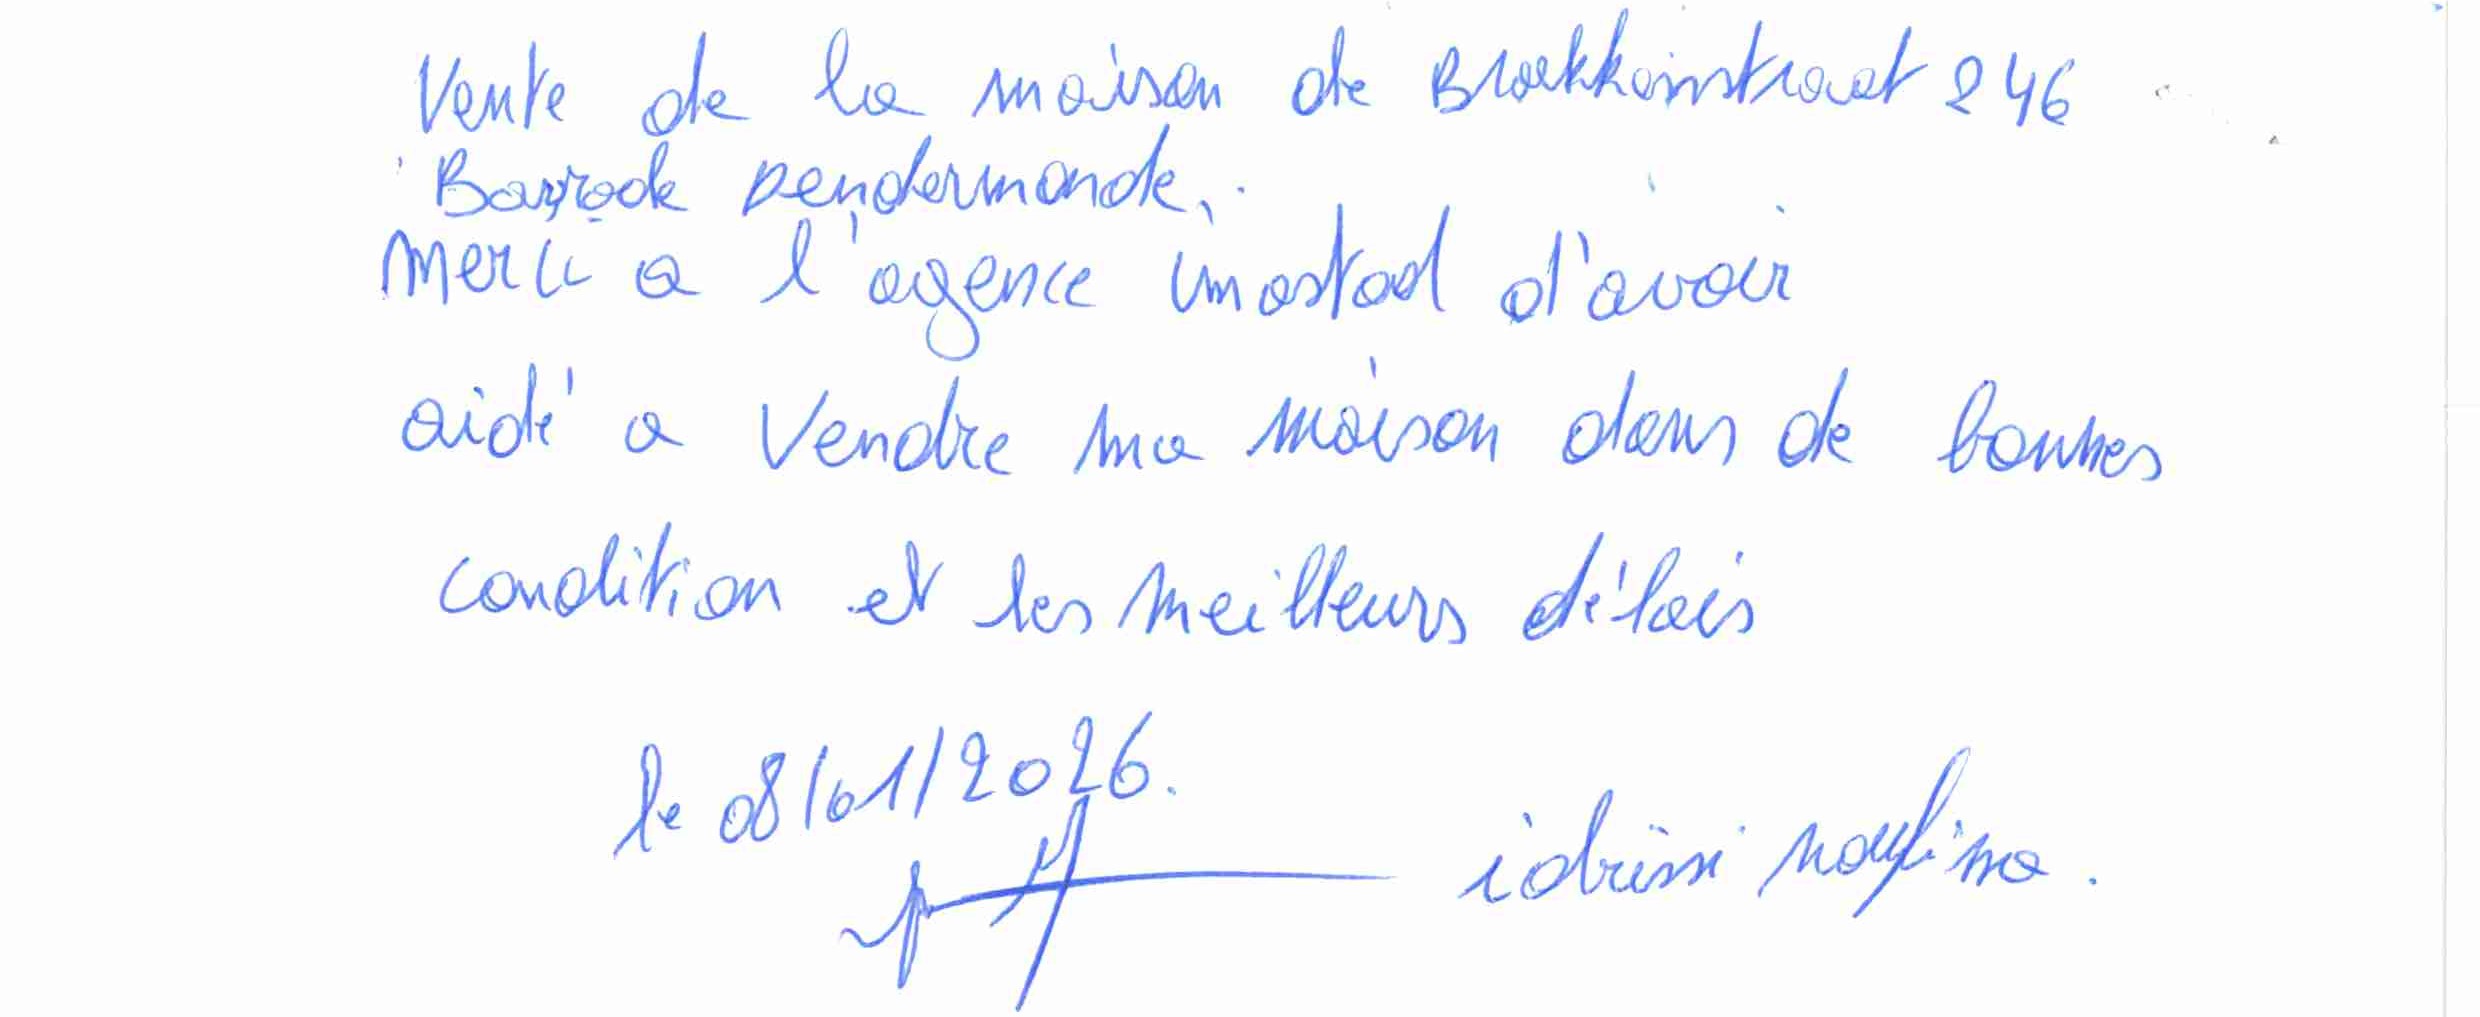 Vente de la maison de Blokkenstraat 246
Baasrode Dendermonde.
Merci a l'agence imostad d'avoir
aidé a Vendre ma maison dans de bonnes
condition et les meilleurs délais
le 08/01/2026.
idrissi